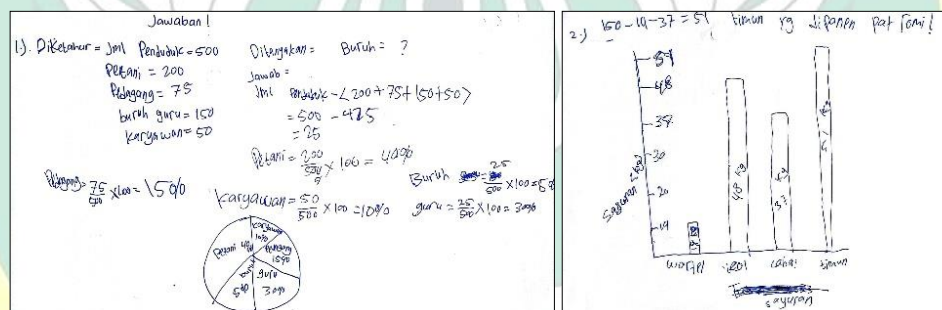 Jawaban!
1). Diketahui = Jml Penduduk = 500
Petani = 200
Pedagang = 75
buruh guru = 150
karyawan = 50
Ditanyakan = Buruh = ?
Jawab =
Jml Penduduk - <200 + 75 + 150 + 50>
= 500 - 475
= 25
Petani = 200/500 × 100 = 40%
Pedagang = 75/500 × 100 = 15%
Karyawan = 50/500 × 100 = 10%
Buruh = 25/500 × 100 = 5%
guru = 25/500 × 100 = 30%
karyawan 10%
Petani 40%
Pedagang 15%
buruh 5%
guru 30%
2.) 150 - 19 - 37 = 51 timun yg dipanen pak Tomi!
Sayuran (kg)
48
38
30
20
19
48 kg
37 kg
51 kg
wortel
cabai
timun
sayuran